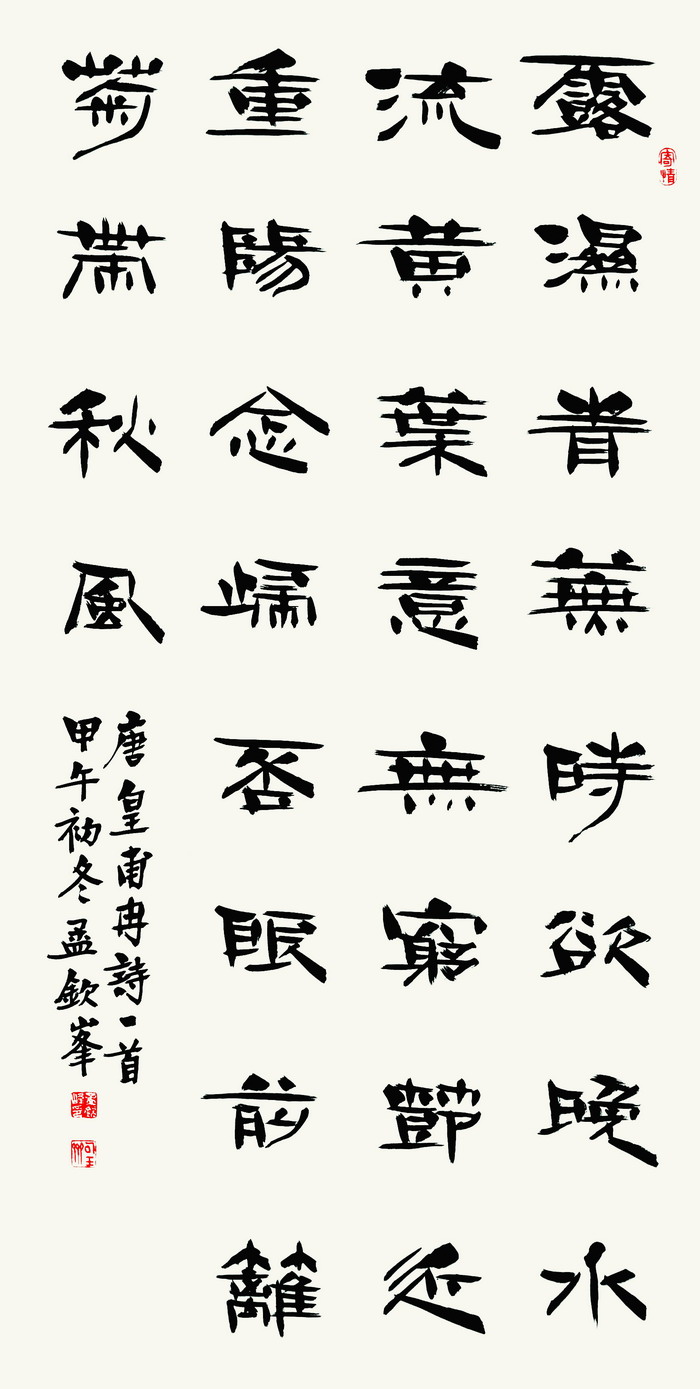 寄情
露濕青蕪時欲晚水
流黃葉意無窮節近
重陽念歸否眼前籬
菊帶秋風
唐皇甫冉詩一首
甲午初冬孟欽峯